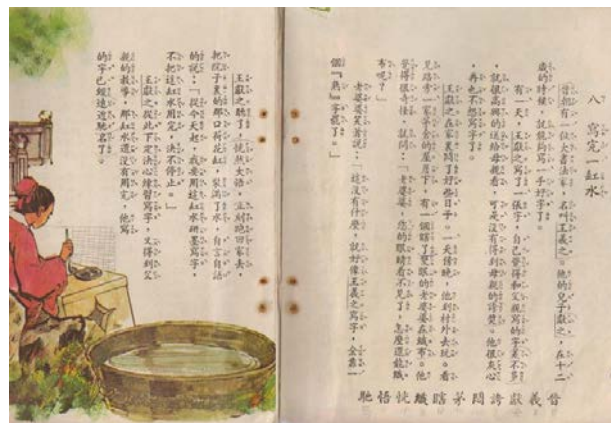 八 寫完一缸水
晉朝有一位大書法家,名叫王羲之。他的兒子獻之,在十二
歲的時候,就能夠寫一手好字了。
有一天,王獻之寫了一張字,自己覺得和父親寫的字差不多
,就很高興的送給母親看,可是沒有得到母親的誇獎。他很灰心
,再也不想寫字了。
王獻之在家裏悶了好些日子。一天傍晚,他到村外去玩。看
見路旁一家茅舍的月下,有一個瞎了雙眼的老婆婆在織布。他
覺得很奇怪,就問:「老婆婆,您的眼睛看不見了,怎麼還能織
布呢?」
老婆婆笑著說:「這沒有什麼,就好像王羲之寫字,全靠一
個『熟』字罷了。」
晉羲獻誇悶茅瞎織恍悟馳
王獻之聽了,恍然大悟。立刻跑回家去,
把院子裏的那口荷花缸,裝滿了水,自言自語
的說:「從今天起,我要用這缸水研墨寫字,
不把這缸水用完,決不停止。」
王獻之從此下定決心練習寫字,又得到父
親的教導,那缸水還沒有用完,他寫
的字已經遠近馳名了。